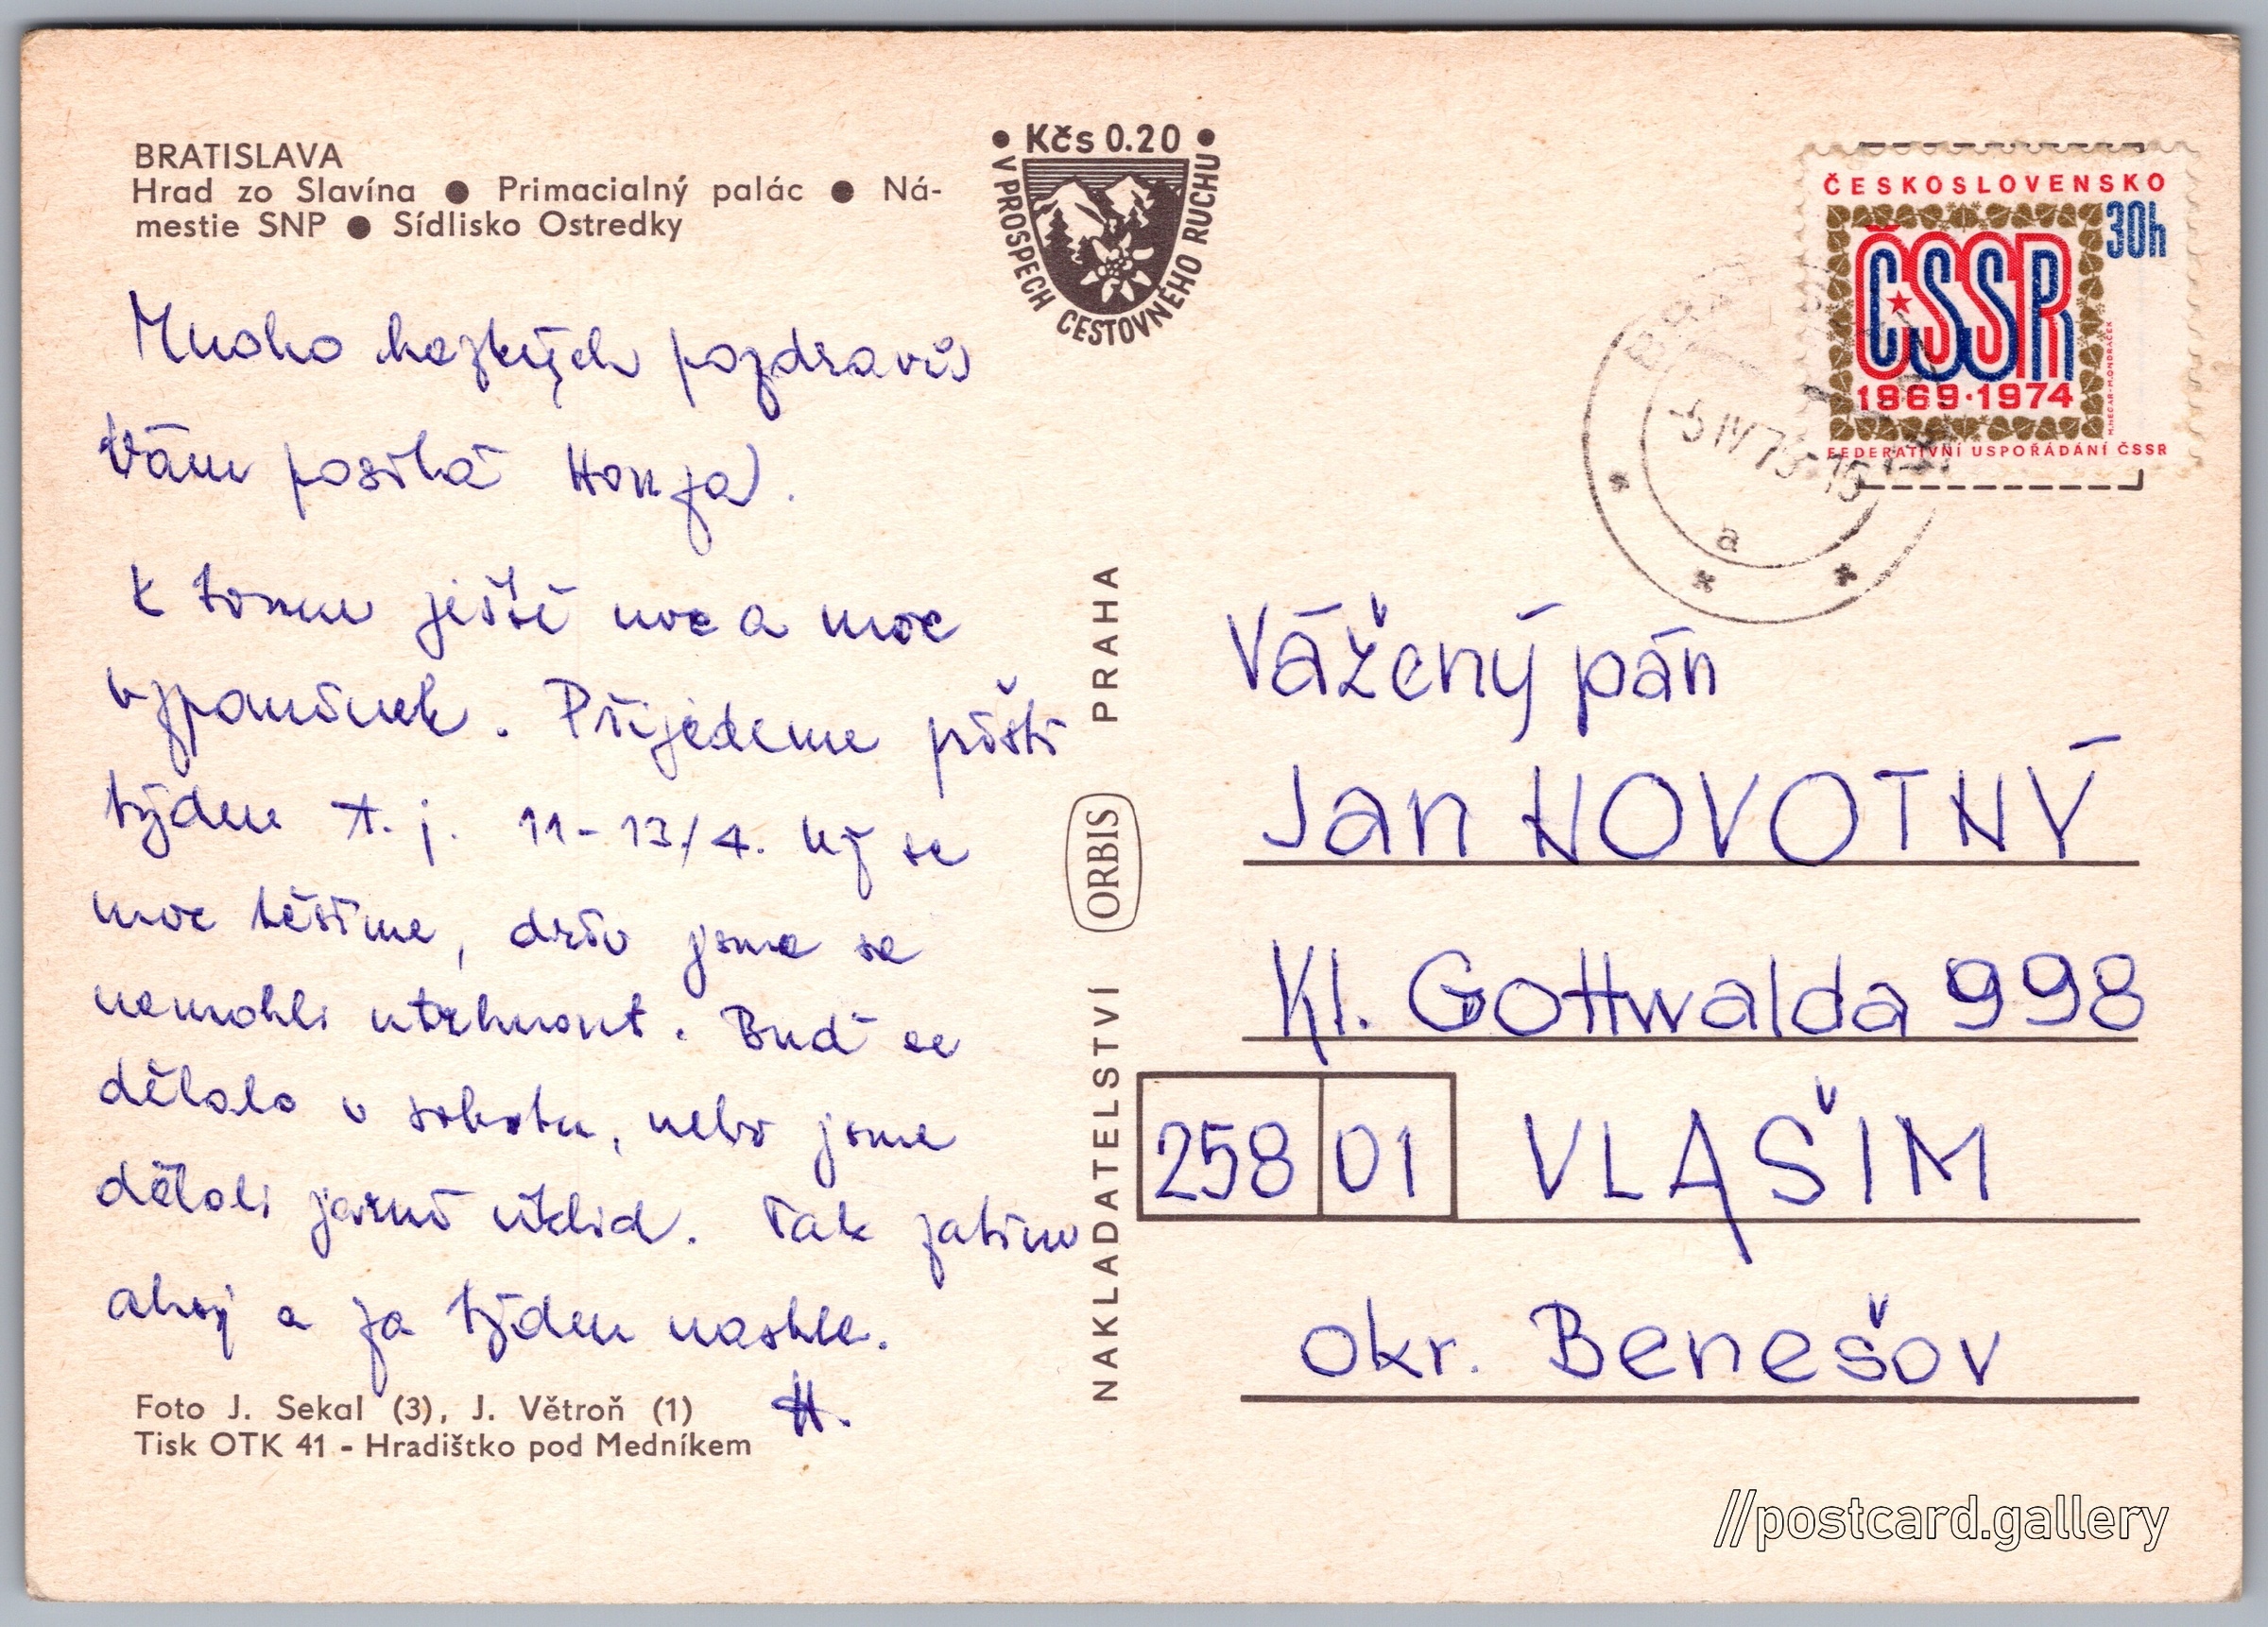 BRATISLAVA
Hrad zo Slavína ● Primacialný palác ● Ná-
mestie SNP ● Sídlisko Ostredky
• Kčs 0.20 •
V PROSPECH CESTOVNÉHO RUCHU
ČESKOSLOVENSKO
30h
ČSSR
1969·1974
FEDERATIVNÍ USPOŘÁDÁNÍ ČSSR
-5.IV.75-15
a
Mnoho hezkých pozdravů
Vám posílá Honza.
K tomu ještě moc a moc
vzpomínek. Přijedeme příští
týden t.j. 11-13/4. Už se
moc těšíme, dřív jsme se
nemohli utrhnout. Buď se
dělalo v sobotu, nebo jsme
dělali jarní úklid. Tak zatím
ahoj a za týden nashle.
H.
Foto J. Sekal (3), J. Větroň (1)
Tisk OTK 41 - Hradištko pod Medníkem
NAKLADATELSTVÍ ORBIS PRAHA
Vážený pán
Jan NOVOTNÝ
Kl. Gottwalda 998
258 01 VLAŠIM
okr. Benešov
//postcard.gallery